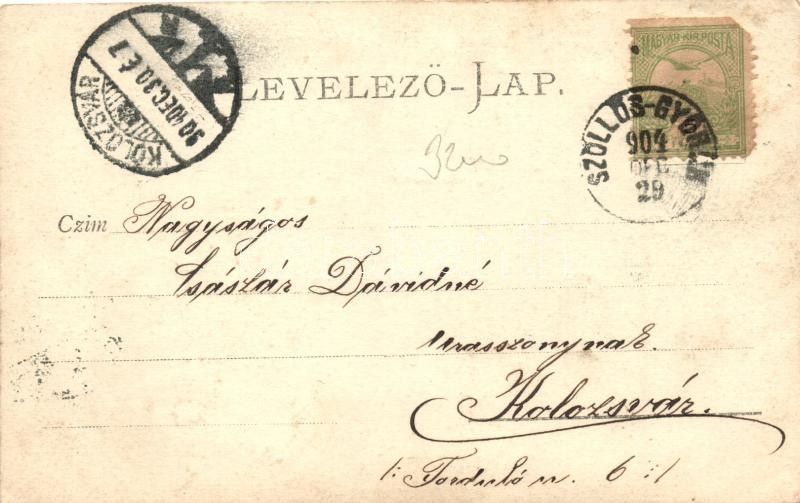 KOLOZSVÁR
904 DEC. 30. É. 7
LEVELEZŐ-LAP.
MAGYAR KIR. POSTA
SZÖLLÖS-GYÖRÖK
904
DEC
29
Czim Nagyságos
Császár Dávidné
Urasszonynak
Kolozsvár.
/: Tordai u. 6 :/